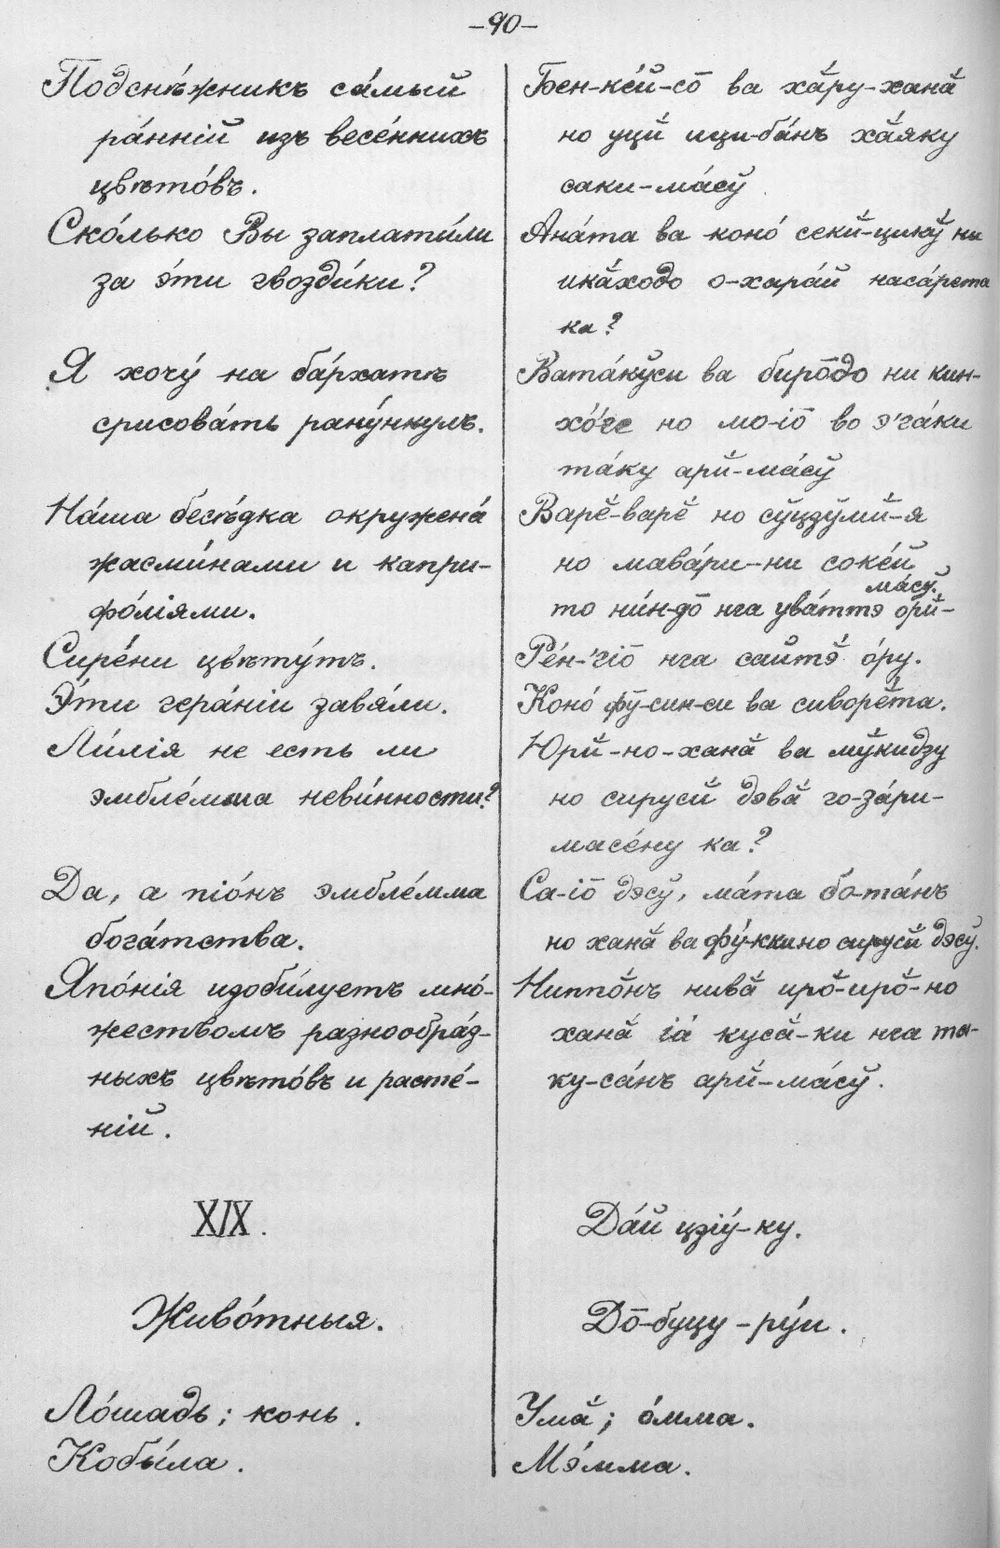 –90–
Подснѣ́жникъ са́мый
ра́нній изъ весе́ннихъ
цвѣто́въ.
Ско́лько Вы заплати́ли
за э́ти гвозди́ки?
Я хочу́ на ба́рхатѣ
срисова́ть рану́нкулъ.
На́ша бесѣ́дка окружена́
жасми́нами и капри-
фо́ліями.
Сире́ни цвѣту́тъ.
Э́ти гера́ніи завя́ли.
Ли́лія не есть ли
эмбле́мма неви́нности?
Да, а піо́нъ эмбле́мма
бога́тства.
Япо́нія изоби́луетъ мно́-
жествомъ разнообра́з-
ныхъ цвѣто́въ и расте́-
ній.
XIX.
Живо́тныя.
Ло́шадь; конь.
Кобы́ла.
Бен-ке́й-со̄ ва хӑру-ханӑ
но уцй ици-ба́нъ хӑяку
саки-ма́сӯ
Ана́та ва коно́ секй-цикӯ ни
икӑходо о-хара́й наса́рета
ка?
Вата́кӯси ва биро̄до ни кин-
хо́ге но мо-іо̄ во э'га́ки
та́ку арй-ма́сӯ
Варӗ-варӗ но сӯцзӯмй-я
но мава́ри-ни соке́й
то ни́н-до̄ нга ува́ттэ орй-
ма́сӯ.
Ре́н-'гіо̄ нга сайтэ̆ о́ру.
Коно́ фӯ-син-си ва сиворӗта.
Юрй-но-ханӑ ва мӯкидзу
но сирусй дэвӑ го-за́ри-
масе́ну ка?
Са-іо̄ дэсӯ, ма́та бо-та́нъ
но ханӑ ва фӯ-кки но сирусй дэсӯ.
Ниппо̆нъ нивӑ иро̆-иро̆-но
ханӑ іа́ кусӑ-ки нга та-
ку-са́нъ арй-ма́сӯ.
Да́й цзіӯ-ку.
До̄-буцу-ру́и.
Умӑ; о́мма.
Мэ́мма.